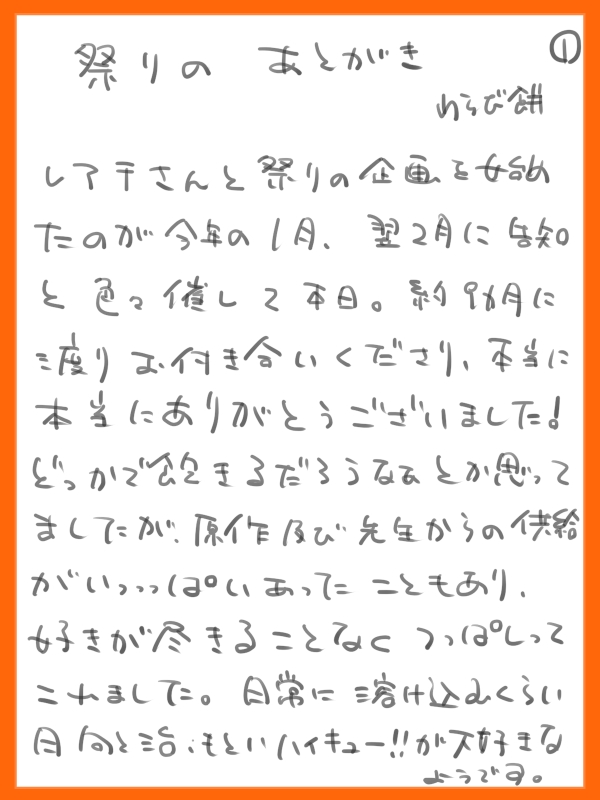 祭りの あとがき ①
わらび餅
レアチさんと祭りの企画を始め
たのが今年の1月、翌2月に告知
と色々催して本日。約9カ月に
渡りお付き合いくださり、本当に
本当にありがとうございました!
どっかで飽きるだろうなぁとか思って
ましたが、原作及び先生からの供給
がいっっっぱいあったこともあり、
好きが尽きることなくつっぱしって
これました。日常に溶け込むくらい
日向と治、もといハイキュー!!が大好きな
ようです。